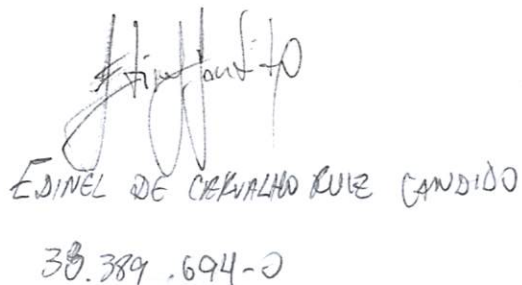 EDINEL DE CARVALHO RUIZ CANDIDO
38.389.694-0